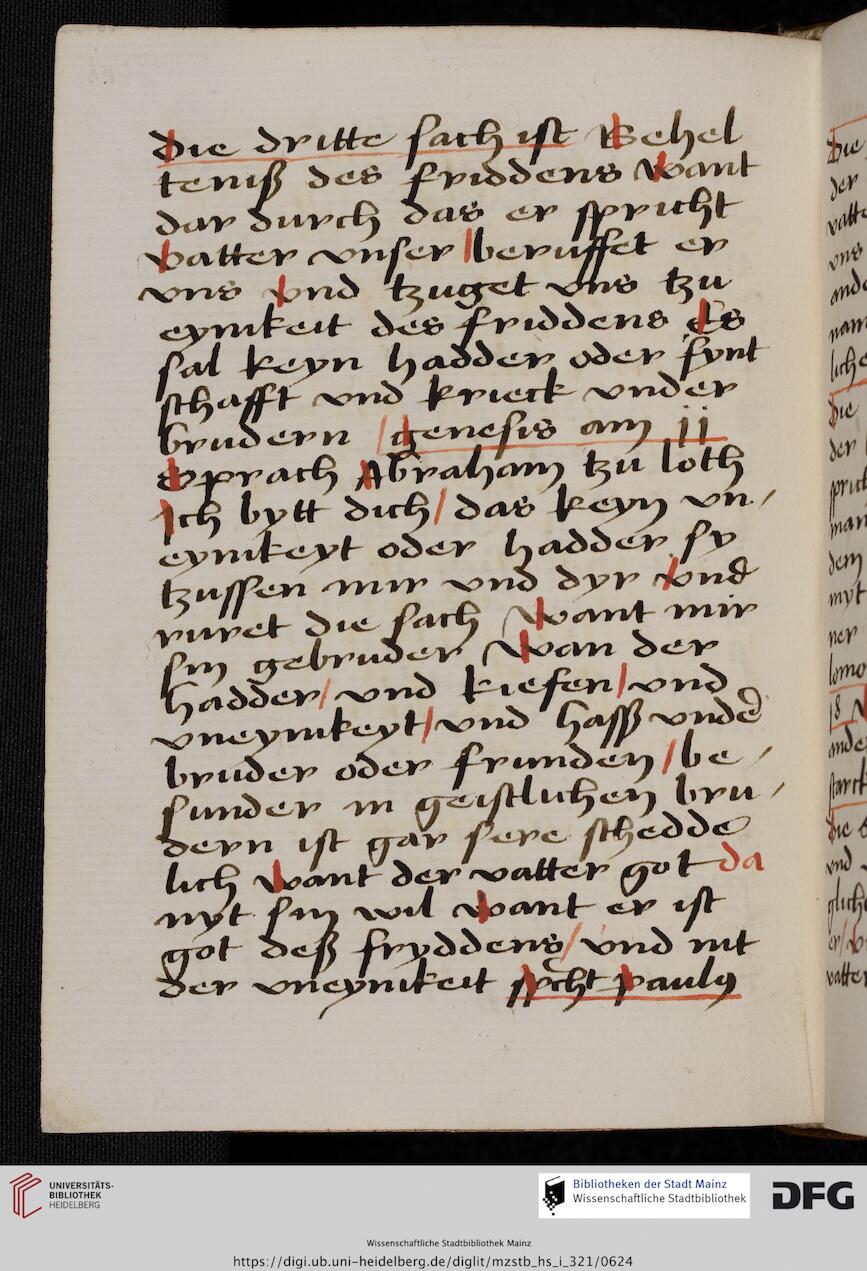 Die dritte sach ist Behel
teniß des friddens Want
dar durch das er spricht
Vatter vnser / beruffet er
vns Vnd tzuget vns tzu
eynikeit des friddens Es
sal keyn hadder oder fynt
schafft vnd krieck vnder
brudern / genesis am ij
Sprach Abraham tzu loth
Ich bytt dich / das keyn vn⸗
eynikeyt oder hadder sy
tzussen mir vnd dyr Vnd
ruret die sach Want mir
sin gebruder Wan der
hadder / vnd kiefen / vnd
vneynikeyt / vnd haß vnder
bruder oder frunden / be⸗
sunder in geistlichen bru⸗
dern ist gar sere schedde
lich Want der vatter got da
nyt sin wil Want er ist
got deß fryddens / vnd nit
der vneynikeit spricht paulus
Die
der
vatte
vns
ande
nam
liche
Die
der
sprich
man
dem
myt
ner
lomo
18
ande
starck
die
vnd
glich
er /
vatter
UNIVERSITÄTS-
BIBLIOTHEK
HEIDELBERG
Bibliotheken der Stadt Mainz
Wissenschaftliche Stadtbibliothek
DFG
Wissenschaftliche Stadtbibliothek Mainz
https://digi.ub.uni-heidelberg.de/diglit/mzstb_hs_i_321/0624